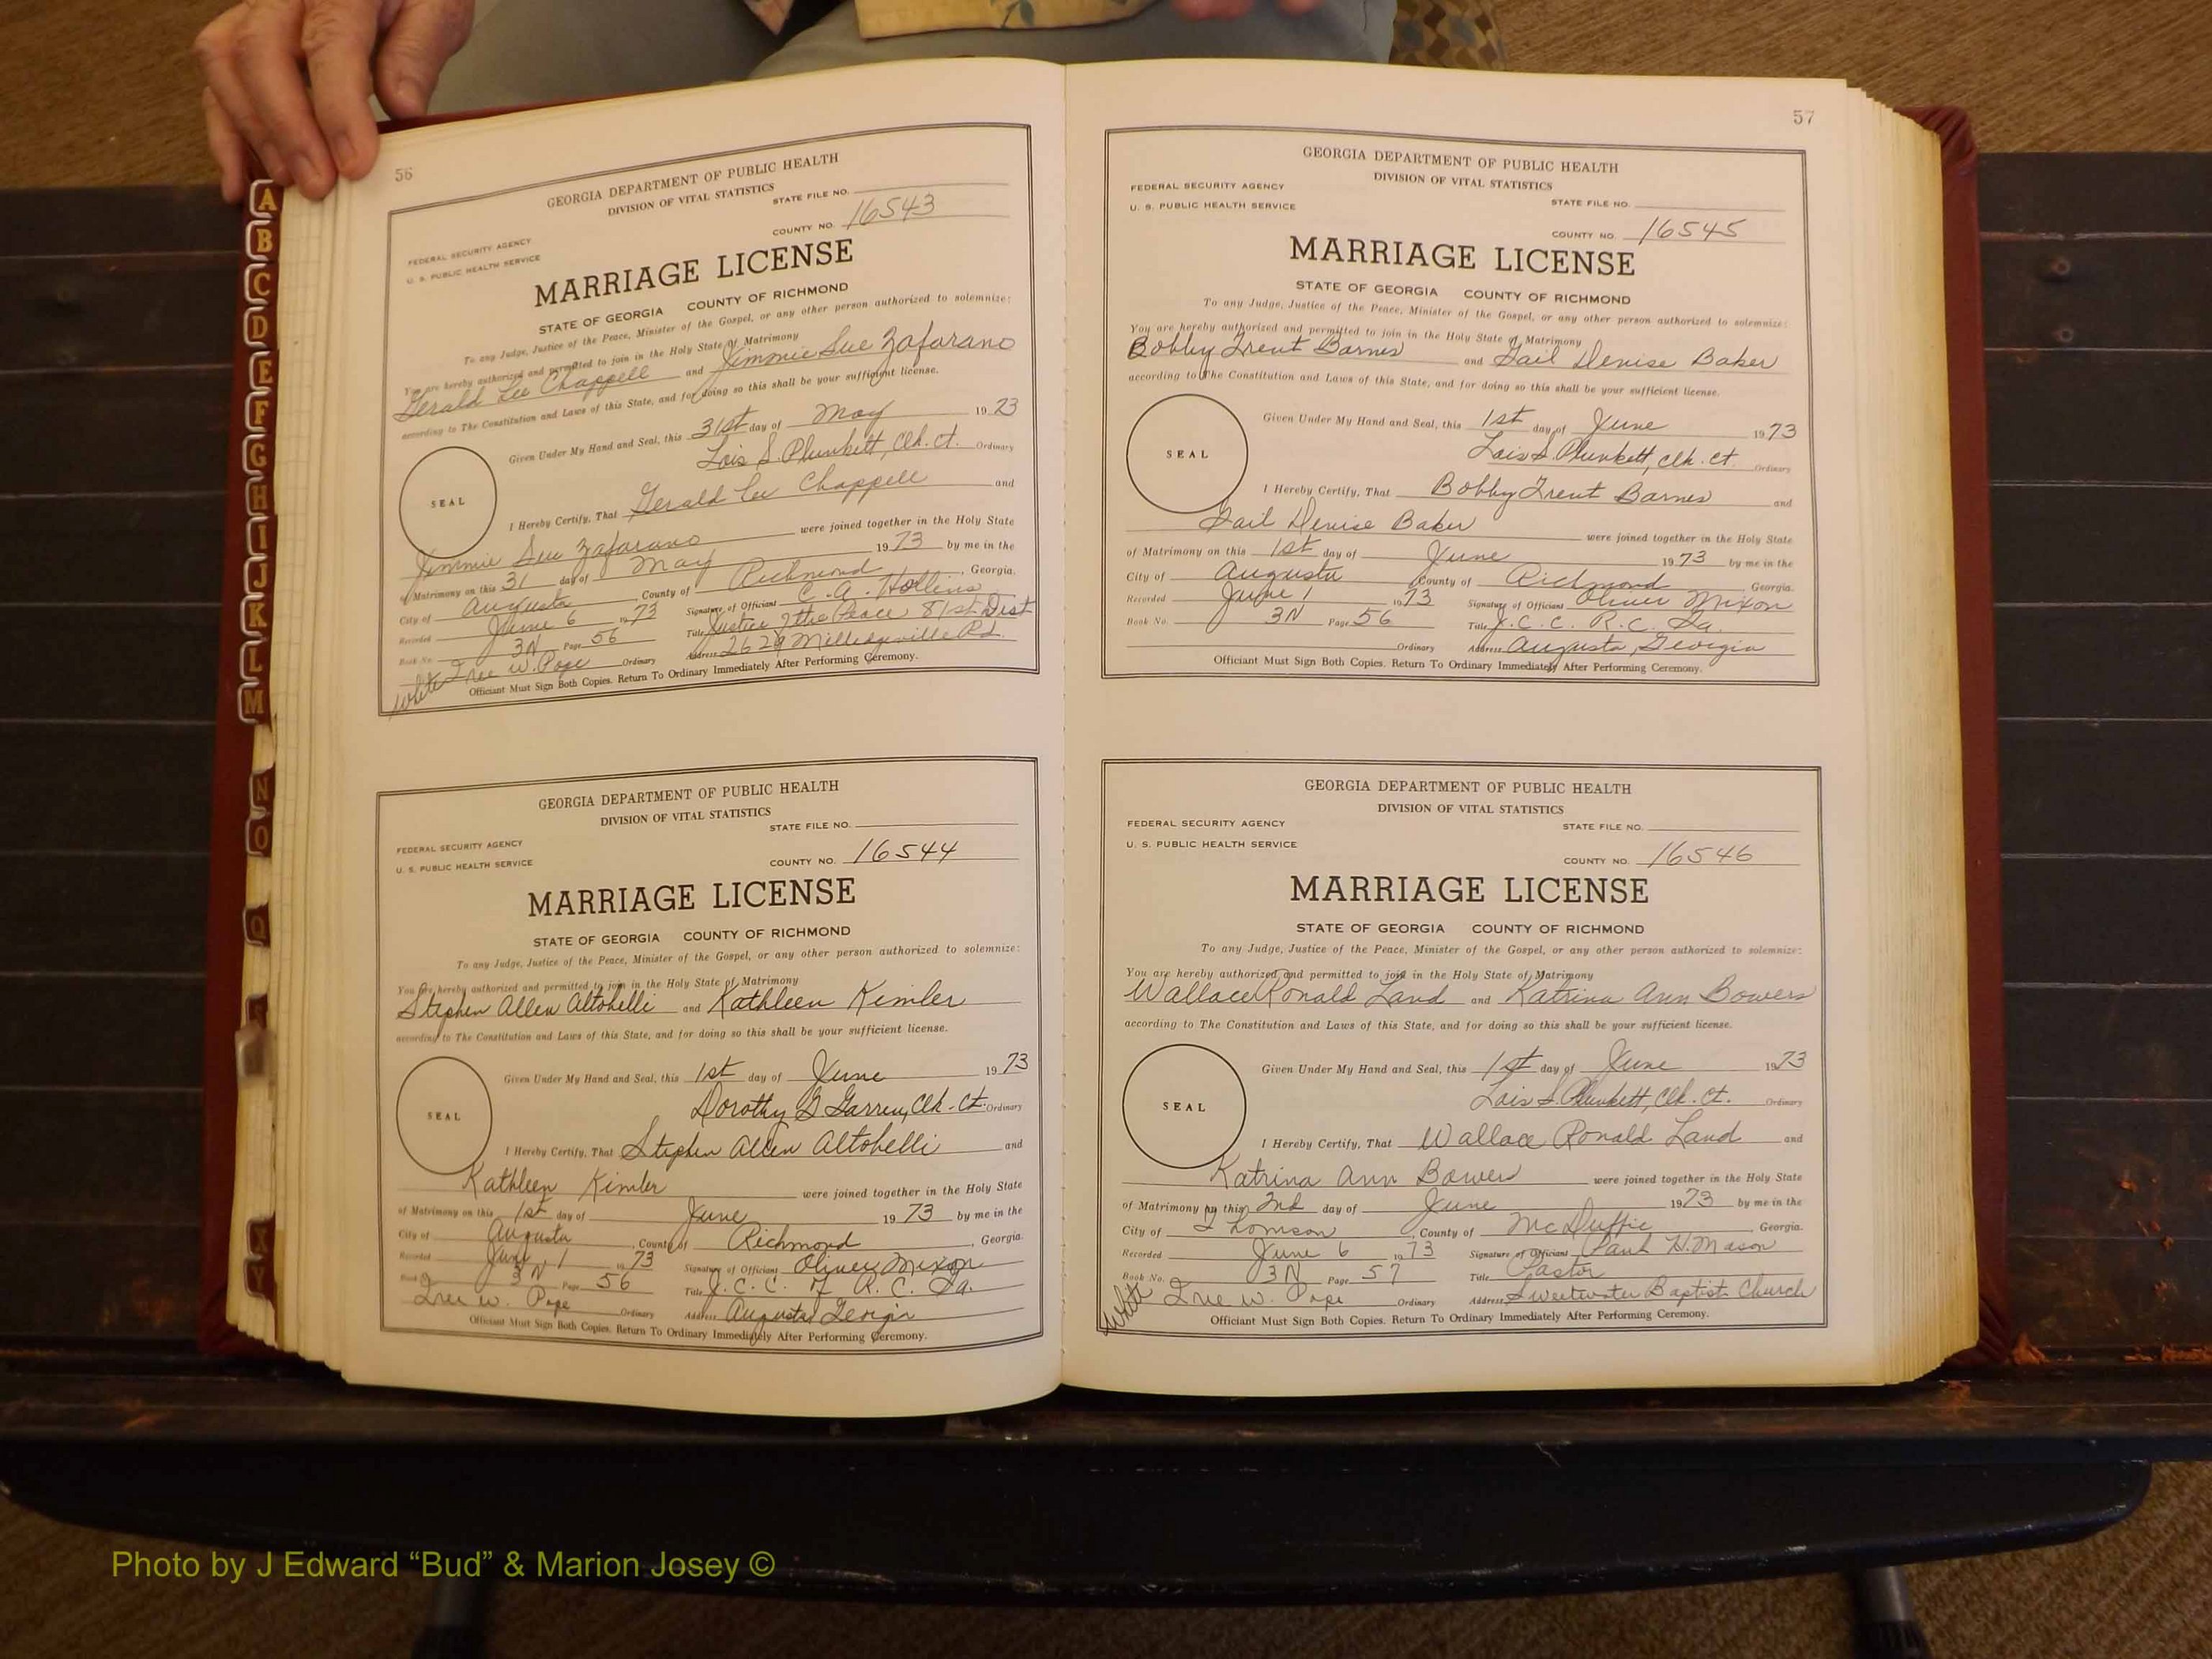 56
GEORGIA DEPARTMENT OF PUBLIC HEALTH
DIVISION OF VITAL STATISTICS
STATE FILE NO.
COUNTY NO. 16543
FEDERAL SECURITY AGENCY
U. S. PUBLIC HEALTH SERVICE
MARRIAGE LICENSE
STATE OF GEORGIA COUNTY OF RICHMOND
To any Judge, Justice of the Peace, Minister of the Gospel, or any other person authorized to solemnize:
You are hereby authorized and permitted to join in the Holy State of Matrimony
Gerald Lee Chappell and Jimmie Sue Zafarano
according to The Constitution and Laws of this State, and for doing so this shall be your sufficient license.
Given Under My Hand and Seal, this 31st day of May 19 73
Lois S. Plunkett, Clk. Ct. Ordinary
SEAL
I Hereby Certify, That Gerald Lee Chappell and
Jimmie Sue Zafarano were joined together in the Holy State
of Matrimony on this 31 day of May 19 73 by me in the
City of Augusta County of Richmond, Georgia.
Recorded June 6 19 73 Signature of Officiant C. A. Hollins
Book No. 3N Page 56 Title Justice of the Peace 81st Dist
Inee W. Pope Ordinary Address 2629 Milledgeville Rd.
White
Officiant Must Sign Both Copies. Return To Ordinary Immediately After Performing Ceremony.
GEORGIA DEPARTMENT OF PUBLIC HEALTH
DIVISION OF VITAL STATISTICS
STATE FILE NO.
FEDERAL SECURITY AGENCY
U. S. PUBLIC HEALTH SERVICE
COUNTY NO. 16544
MARRIAGE LICENSE
STATE OF GEORGIA COUNTY OF RICHMOND
To any Judge, Justice of the Peace, Minister of the Gospel, or any other person authorized to solemnize:
You are hereby authorized and permitted to join in the Holy State of Matrimony
Stephen Allen Altobelli and Kathleen Kimler
according to The Constitution and Laws of this State, and for doing so this shall be your sufficient license.
Given Under My Hand and Seal, this 1st day of June 19 73
Dorothy G Garren, Clk. Ct. Ordinary
SEAL
I Hereby Certify, That Stephen Allen Altobelli and
Kathleen Kimler were joined together in the Holy State
of Matrimony on this 1st day of June 19 73 by me in the
City of Augusta, County of Richmond, Georgia.
Recorded June 1 19 73 Signature of Officiant Oliver Mixon
Book No. 3N Page 56 Title J. C. C. of R. C. Ga.
Inee W. Pope Ordinary Address Augusta, Georgia
Officiant Must Sign Both Copies. Return To Ordinary Immediately After Performing Ceremony.
57
GEORGIA DEPARTMENT OF PUBLIC HEALTH
DIVISION OF VITAL STATISTICS
FEDERAL SECURITY AGENCY
U. S. PUBLIC HEALTH SERVICE
STATE FILE NO.
COUNTY NO. 16545
MARRIAGE LICENSE
STATE OF GEORGIA COUNTY OF RICHMOND
To any Judge, Justice of the Peace, Minister of the Gospel, or any other person authorized to solemnize:
You are hereby authorized and permitted to join in the Holy State of Matrimony
Bobby Trent Barnes and Gail Denise Baker
according to The Constitution and Laws of this State, and for doing so this shall be your sufficient license.
Given Under My Hand and Seal, this 1st day of June 19 73
Lois S Plunkett, Clk. Ct. Ordinary
SEAL
I Hereby Certify, That Bobby Trent Barnes and
Gail Denise Baker were joined together in the Holy State
of Matrimony on this 1st day of June 19 73 by me in the
City of Augusta County of Richmond Georgia.
Recorded June 1 19 73 Signature of Officiant Oliver Mixon
Book No. 3N Page 56 Title J. C. C. R. C. Ga.
Ordinary Address Augusta, Georgia
Officiant Must Sign Both Copies. Return To Ordinary Immediately After Performing Ceremony.
GEORGIA DEPARTMENT OF PUBLIC HEALTH
DIVISION OF VITAL STATISTICS
FEDERAL SECURITY AGENCY
U. S. PUBLIC HEALTH SERVICE
STATE FILE NO.
COUNTY NO. 16546
MARRIAGE LICENSE
STATE OF GEORGIA COUNTY OF RICHMOND
To any Judge, Justice of the Peace, Minister of the Gospel, or any other person authorized to solemnize:
You are hereby authorized and permitted to join in the Holy State of Matrimony
Wallace Ronald Land and Katrina Ann Bowers
according to The Constitution and Laws of this State, and for doing so this shall be your sufficient license.
Given Under My Hand and Seal, this 1st day of June 19 73
Lois S. Plunkett, Clk. Ct. Ordinary
SEAL
I Hereby Certify, That Wallace Ronald Land and
Katrina Ann Bowers were joined together in the Holy State
of Matrimony on this 2nd day of June 19 73 by me in the
City of Thomson, County of McDuffie, Georgia.
Recorded June 6 19 73 Signature of Officiant Paul H. Mason
Book No. 3N Page 57 Title Pastor
White Inee W. Pope Ordinary Address Sweetwater Baptist Church
Officiant Must Sign Both Copies. Return To Ordinary Immediately After Performing Ceremony.
A
B
C
D
E
F
G
H
I
J
K
L
M
N
O
Q
X
Y
Photo by J Edward “Bud” & Marion Josey ©